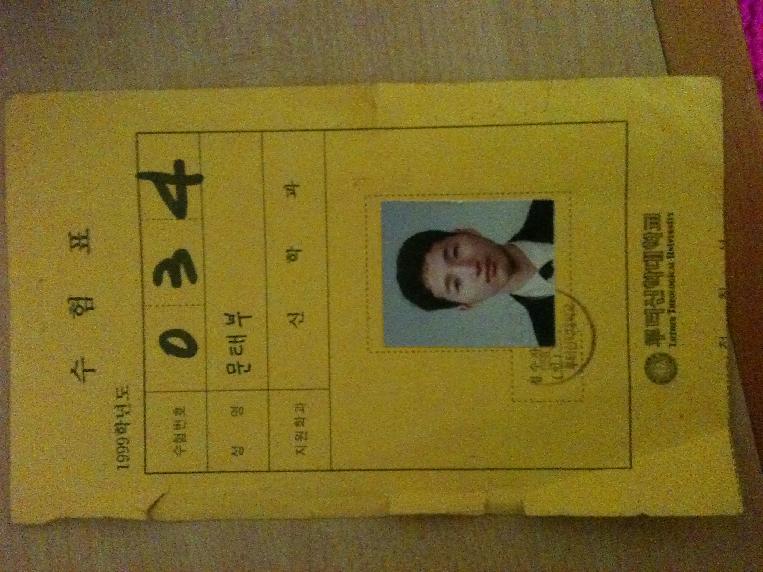 1999학년도
수 험 표
수험번호 0 3 4
성 명 문태부
지원학과 신 학 과
접수
루터신학대학교
Luther Theological University